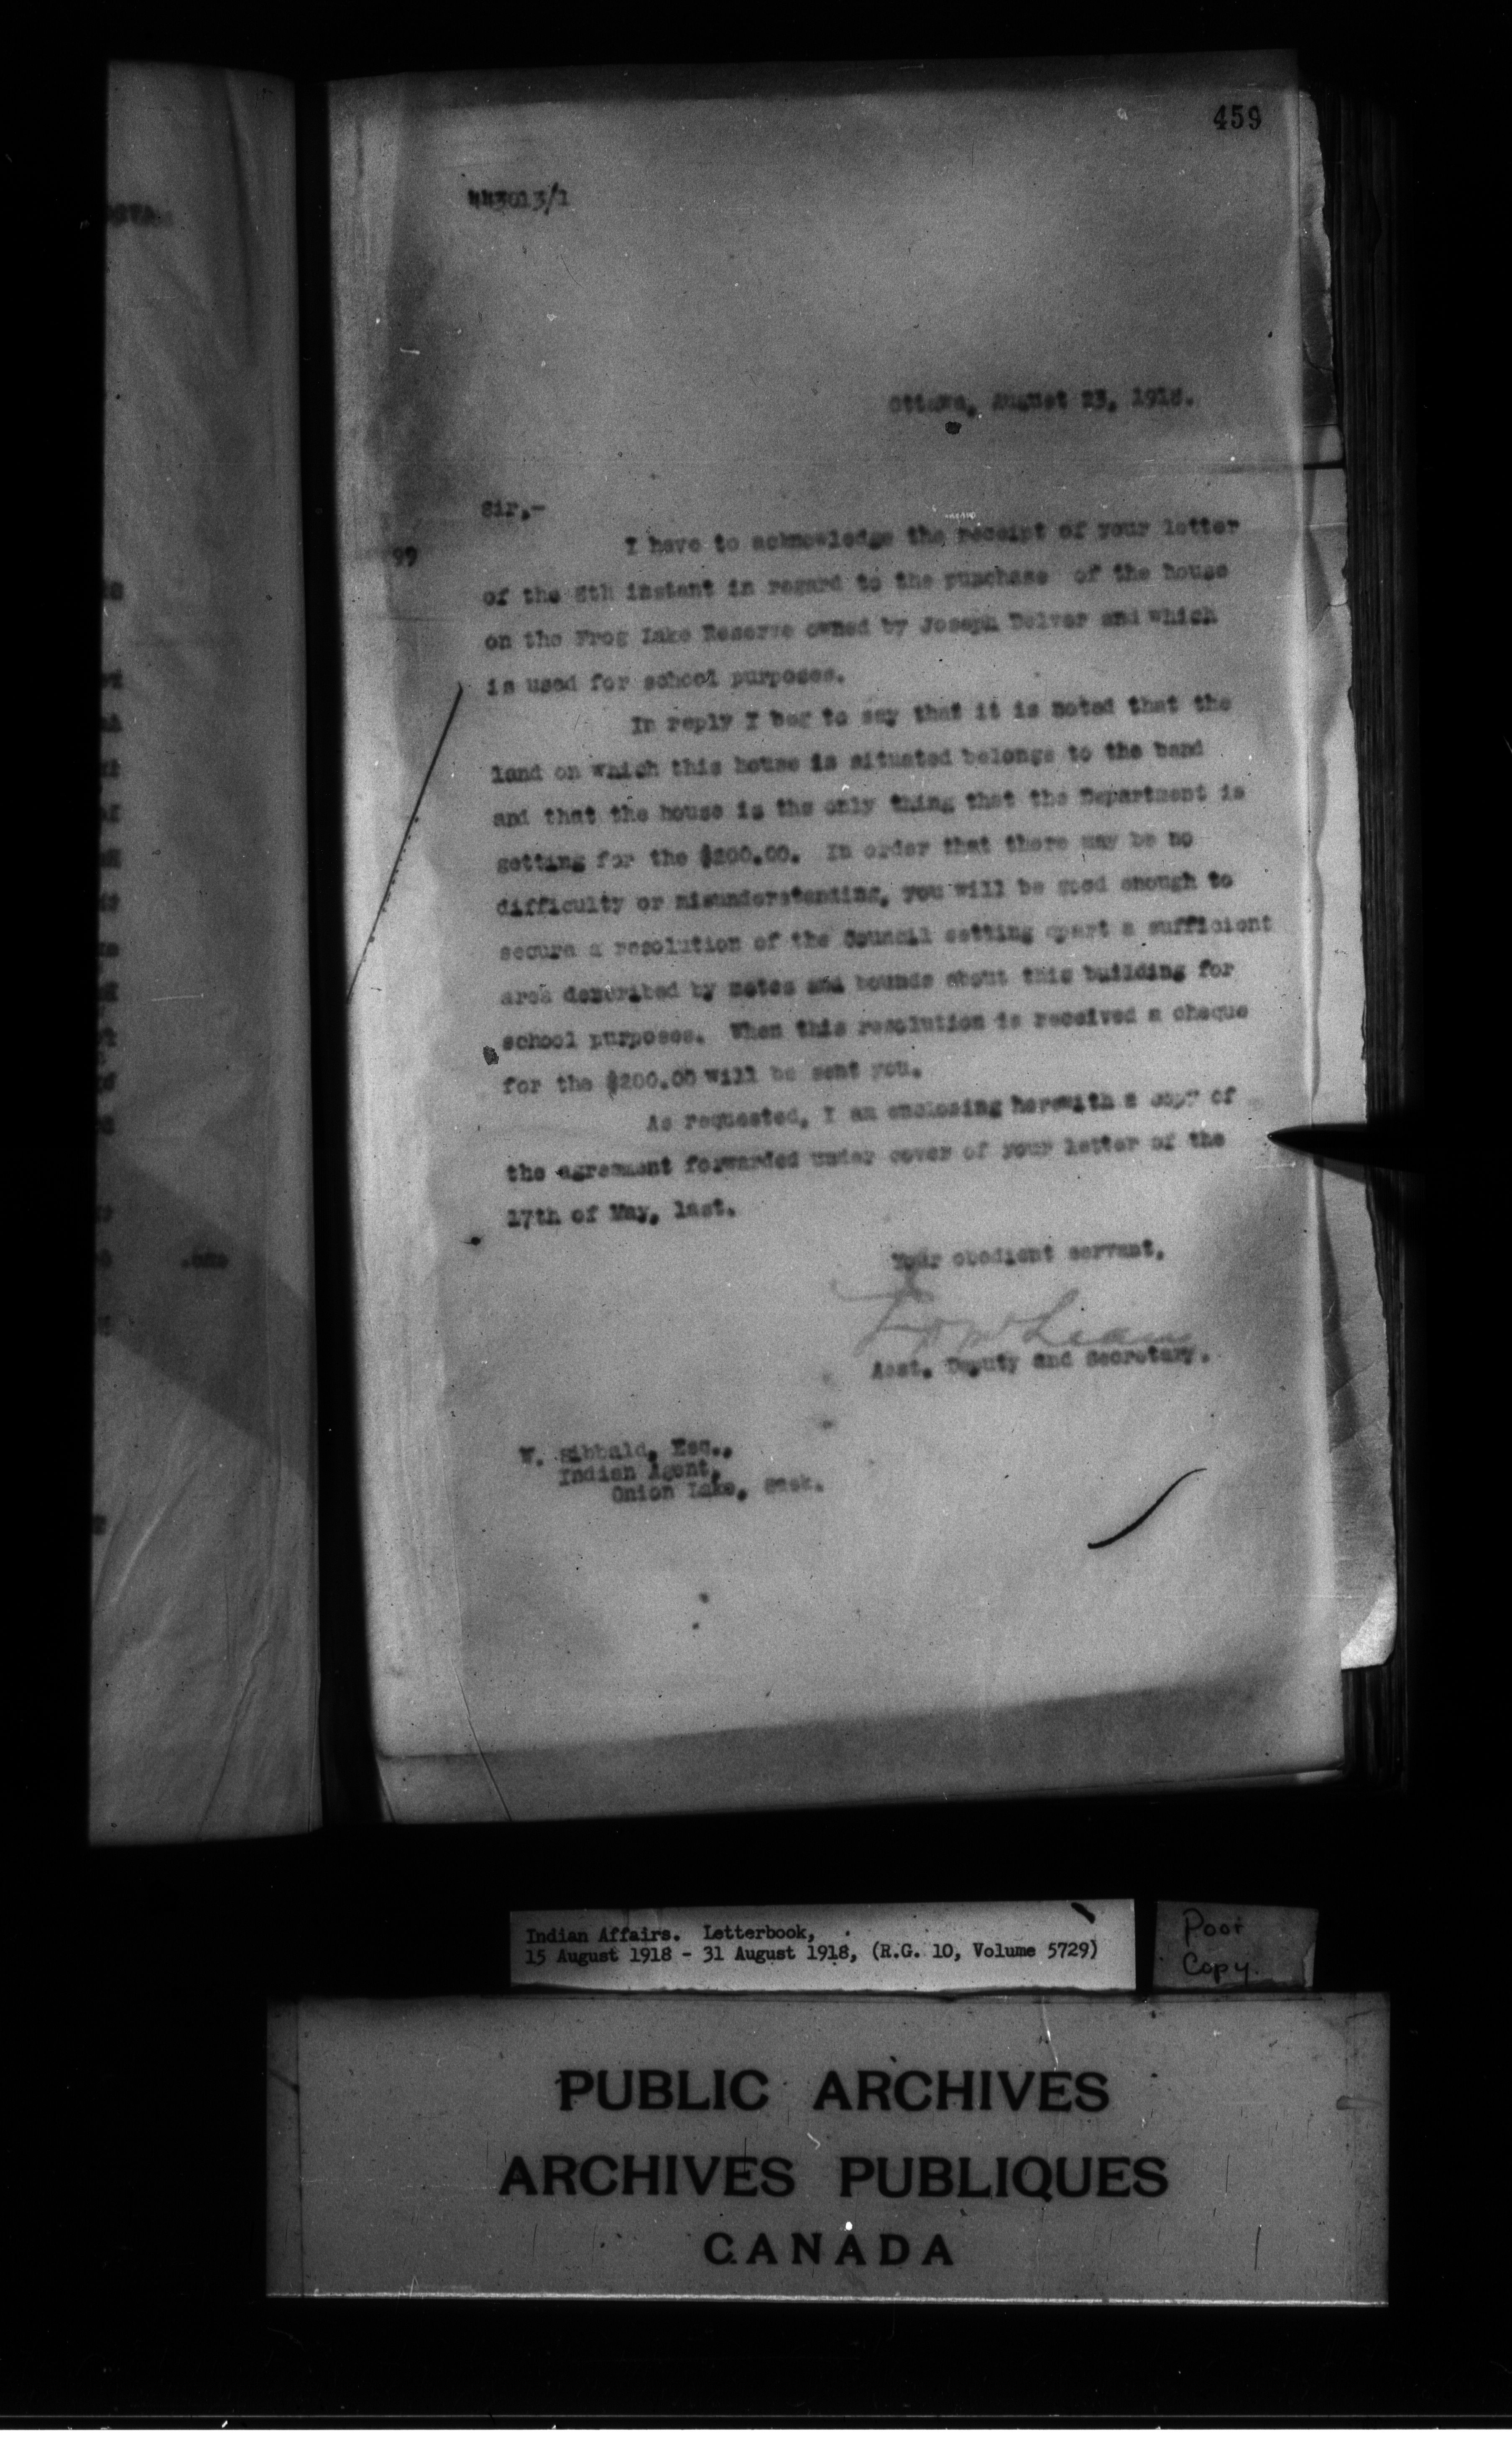 459
443013/1
Ottawa, August 23, 1918.
Sir,-
99
I have to acknowledge the receipt of your letter
of the 8th instant in regard to the purchase of the house
on the Frog Lake Reserve owned by Joseph Delver and which
is used for school purposes.
In reply I beg to say that it is noted that the
land on which this house is situated belongs to the band
and that the house is the only thing that the Department is
getting for the $200.00. In order that there may be no
difficulty or misunderstanding, you will be good enough to
secure a resolution of the Council setting apart a sufficient
area described by metes and bounds about this building for
school purposes. When this resolution is received a cheque
for the $200.00 will be sent you.
As requested, I am enclosing herewith a copy of
the agreement forwarded under cover of your letter of the
17th of May, last.
Your obedient servant,
Asst. Deputy and Secretary.
W. Sibbald, Esq.,
Indian Agent,
Onion Lake, Sask.
Indian Affairs. Letterbook,
15 August 1918 - 31 August 1918, (R.G. 10, Volume 5729)
Poor
Copy.
PUBLIC ARCHIVES
ARCHIVES PUBLIQUES
CANADA